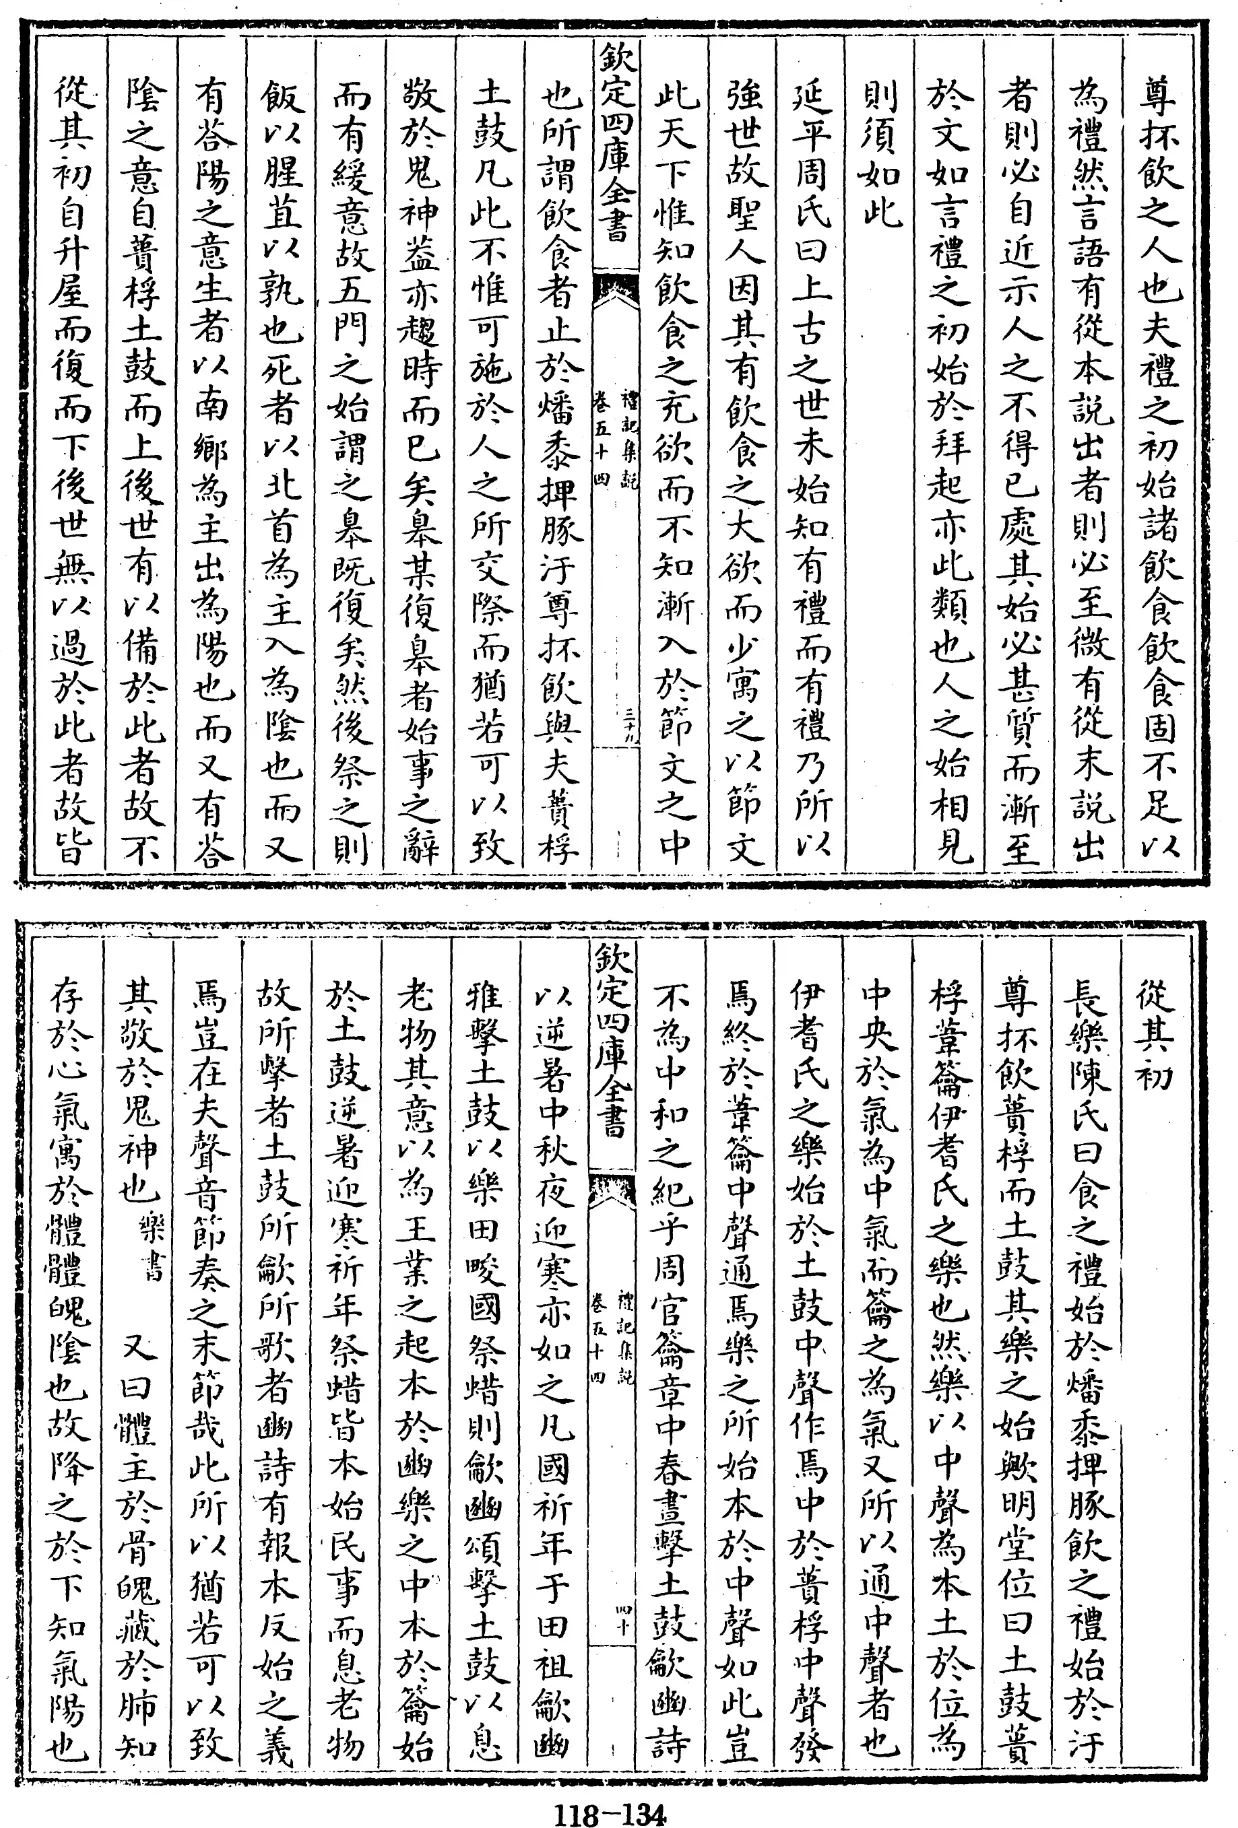 尊抔飲之人也夫禮之初始諸飲食飲食固不足以
為禮然言語有從本説出者則必至微有從末説出
者則必自近示人之不得已處其始必甚質而漸至
於文如言禮之初始於拜起亦此類也人之始相見
則須如此
延平周氏曰上古之世未始知有禮而有禮乃所以
強世故聖人因其有飲食之大欲而少寓之以節文
此天下惟知飲食之充欲而不知漸入於節文之中
欽定四庫全書
禮記集説
卷五十四
三十八
也所謂飲食者止於燔黍捭豚汙尊抔飲與夫蕢桴
土鼓凡此不惟可施於人之所交際而猶若可以致
敬於鬼神葢亦趨時而已矣皋某復皋者始事之辭
而有緩意故五門之始謂之皋既復矣然後祭之則
飯以腥苴以孰也死者以北首為主入為陰也而又
有荅陽之意生者以南鄉為主出為陽也而又有荅
陰之意自蕢桴土鼓而上後世有以備於此者故不
從其初自升屋而復而下後世無以過於此者故皆
從其初
長樂陳氏曰食之禮始於燔黍捭豚飲之禮始於汙
尊抔飲蕢桴而土鼓其樂之始歟明堂位曰土鼓蕢
桴葦籥伊耆氏之樂也然樂以中聲為本土於位為
中央於氣為中氣而籥之為氣又所以通中聲者也
伊耆氏之樂始於土鼓中聲作焉中於蕢桴中聲發
焉終於葦籥中聲通焉樂之所始本於中聲如此豈
不為中和之紀乎周官籥章中春晝擊土鼓龡豳詩
欽定四庫全書
禮記集説
卷五十四
四十
以逆暑中秋夜迎寒亦如之凡國祈年于田祖龡豳
雅擊土鼓以樂田畯國祭蜡則龡豳頌擊土鼓以息
老物其意以為王業之起本於豳樂之中本於籥始
於土鼓逆暑迎寒祈年祭蜡皆本始民事而息老物
故所擊者土鼓所龡所歌者豳詩有報本反始之義
焉豈在夫聲音節奏之末節哉此所以猶若可以致
其敬於鬼神也樂書 又曰體主於骨魄藏於肺知
存於心氣寓於體體魄陰也故降之於下知氣陽也
118-134